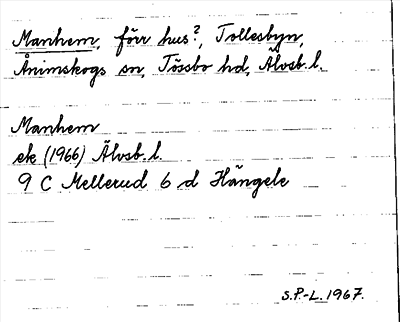 Manhem, förr hus?, Tollesbyn,
Ånimskogs sn, Tössbo hd, Älvsb. l.
Manhem
ek (1966) Älvsb. l.
9 C Mellerud 6 d Hängele
S.P.-L. 1967.